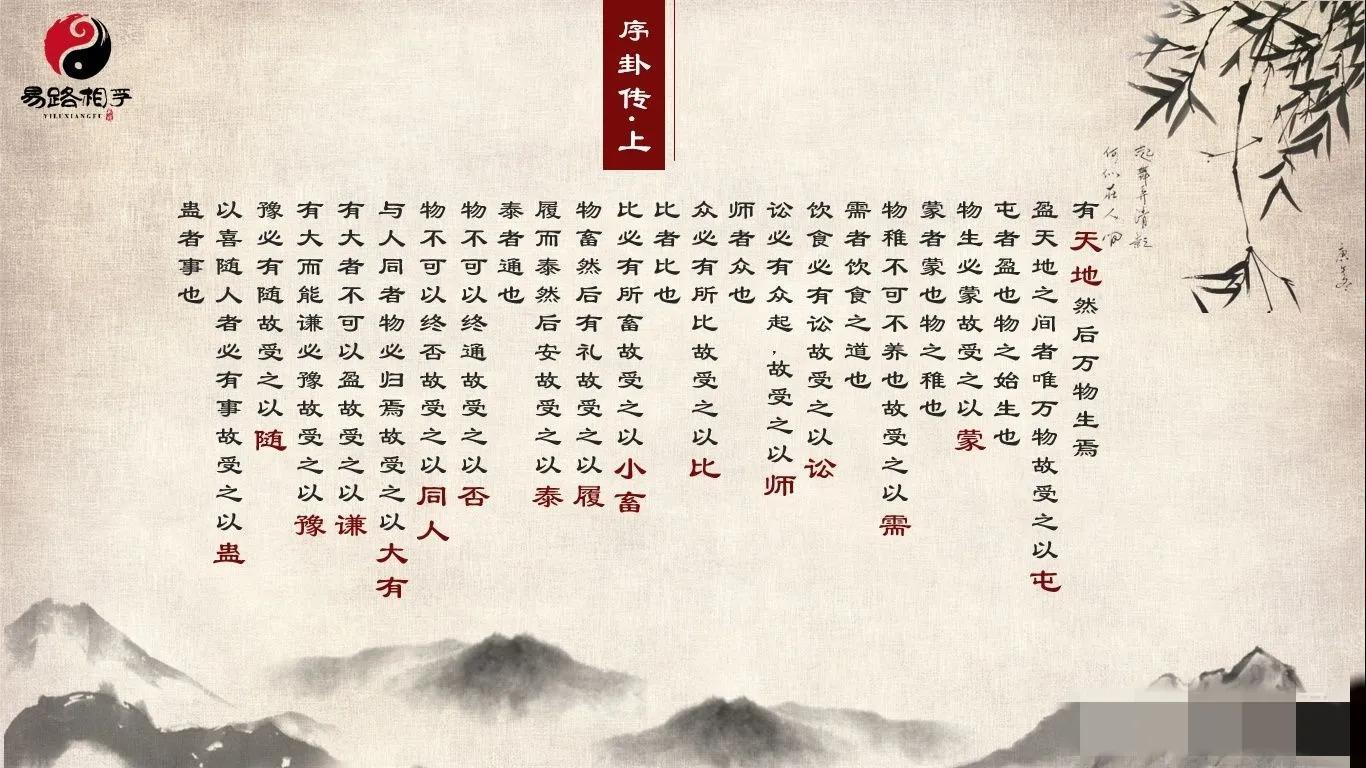 易路相孚
YILUXIANGFU
序卦传·上
有天地然后万物生焉
盈天地之间者唯万物故受之以屯
屯者盈也物之始生也
物生必蒙故受之以蒙
蒙者蒙也物之稚也
物稚不可不养也故受之以需
需者饮食之道也
饮食必有讼故受之以讼
讼必有众起,故受之以师
师者众也
众必有所比故受之以比
比者比也
比必有所畜故受之以小畜
物畜然后有礼故受之以履
履而泰然后安故受之以泰
泰者通也
物不可以终通故受之以否
物不可以终否故受之以同人
与人同者物必归焉故受之以大有
有大者不可以盈故受之以谦
有大而能谦必豫故受之以豫
豫必有随故受之以随
以喜随人者必有事故受之以蛊
蛊者事也
起舞弄清影
何似在人间